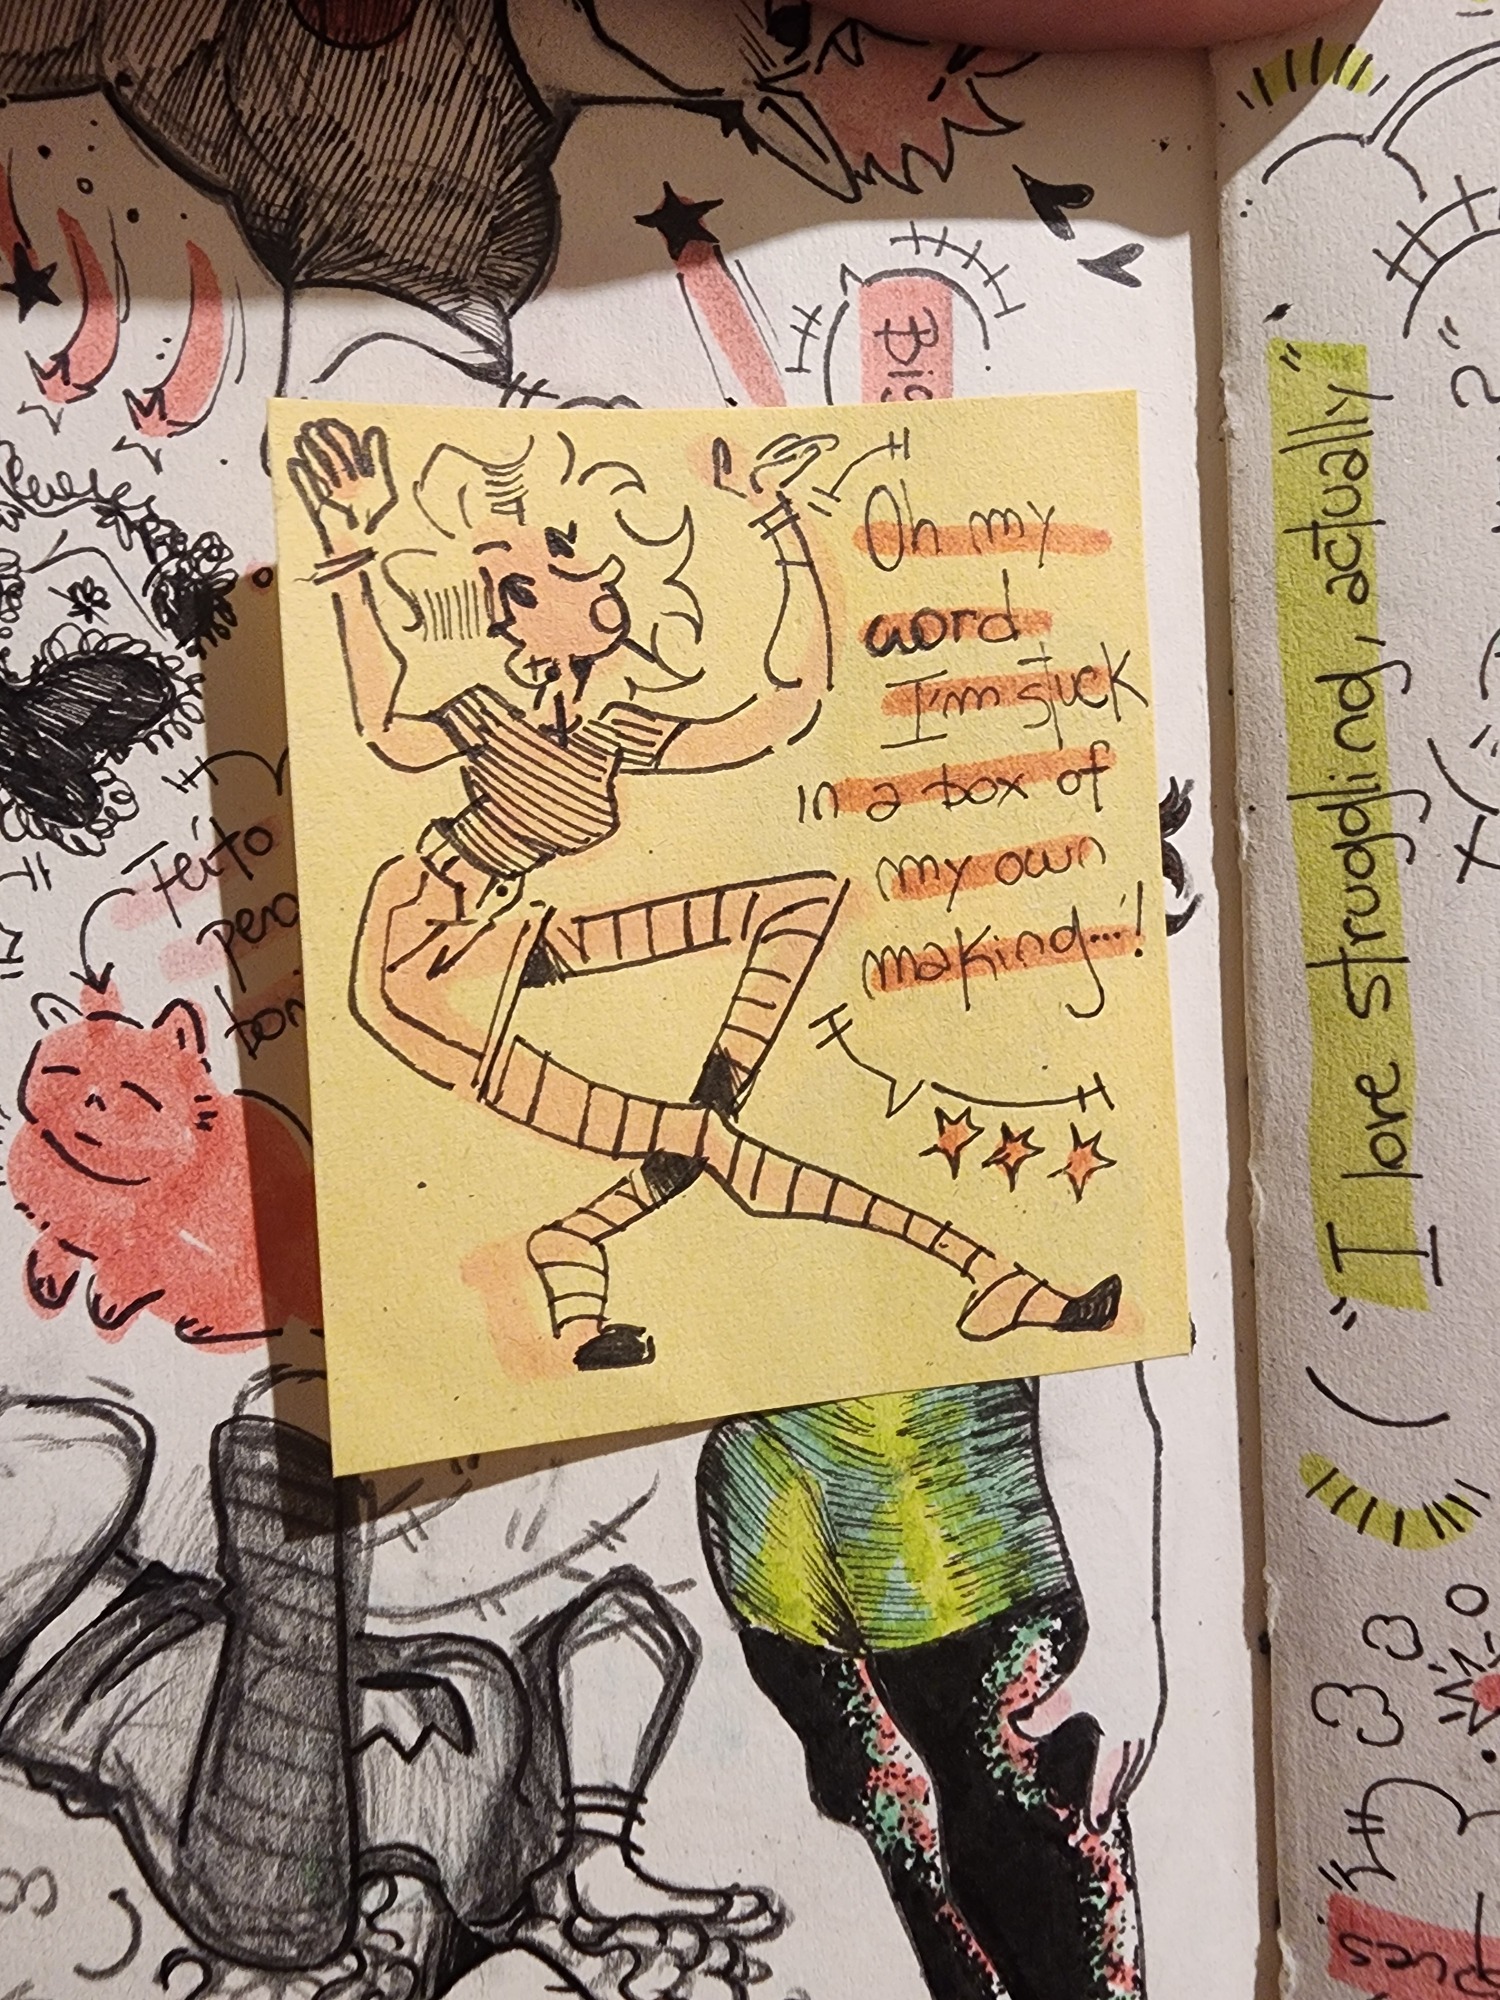 Oh my
word
I'm stuck
in a box of
my own
making...!
Big
Feito
"I love struggling, actually"